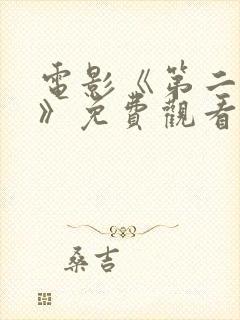 電影《第二
》免費觀看
桑吉